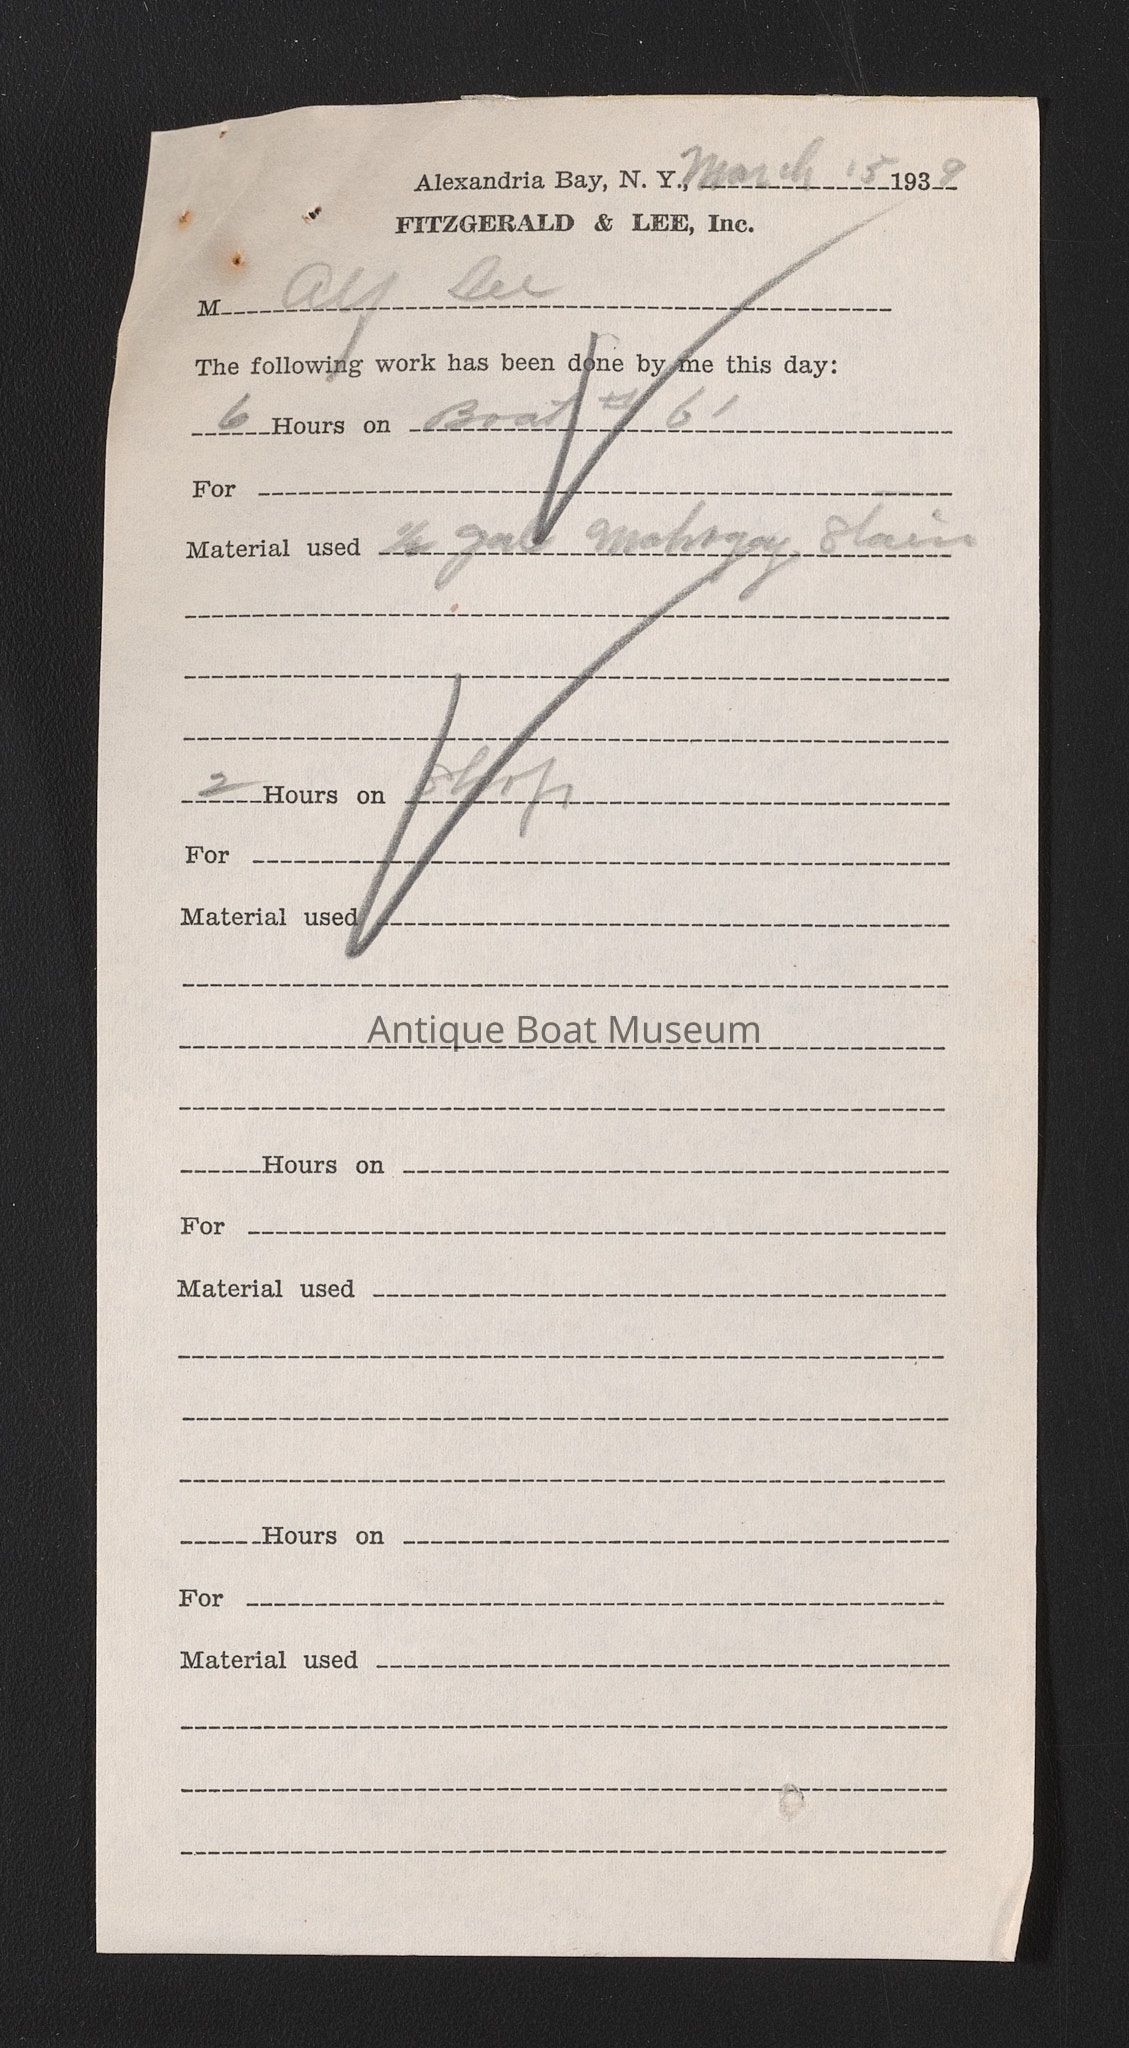 Alexandria Bay, N. Y., March 15 1939
FITZGERALD & LEE, Inc.
M Alf Lee
The following work has been done by me this day:
6 Hours on Boat # 61
For
Material used gal Mahogay Stain
2 Hours on Shop
For
Material used
Antique Boat Museum
Hours on
For
Material used
Hours on
For
Material used